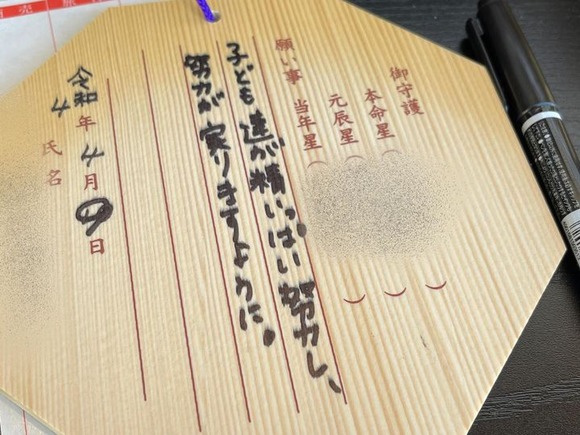 御守護
本命星（　）
元辰星（　）
当年星（　）
願い事
子ども達が精いっぱい努力し、
努力が実りますように。
令和4年4月日
氏名